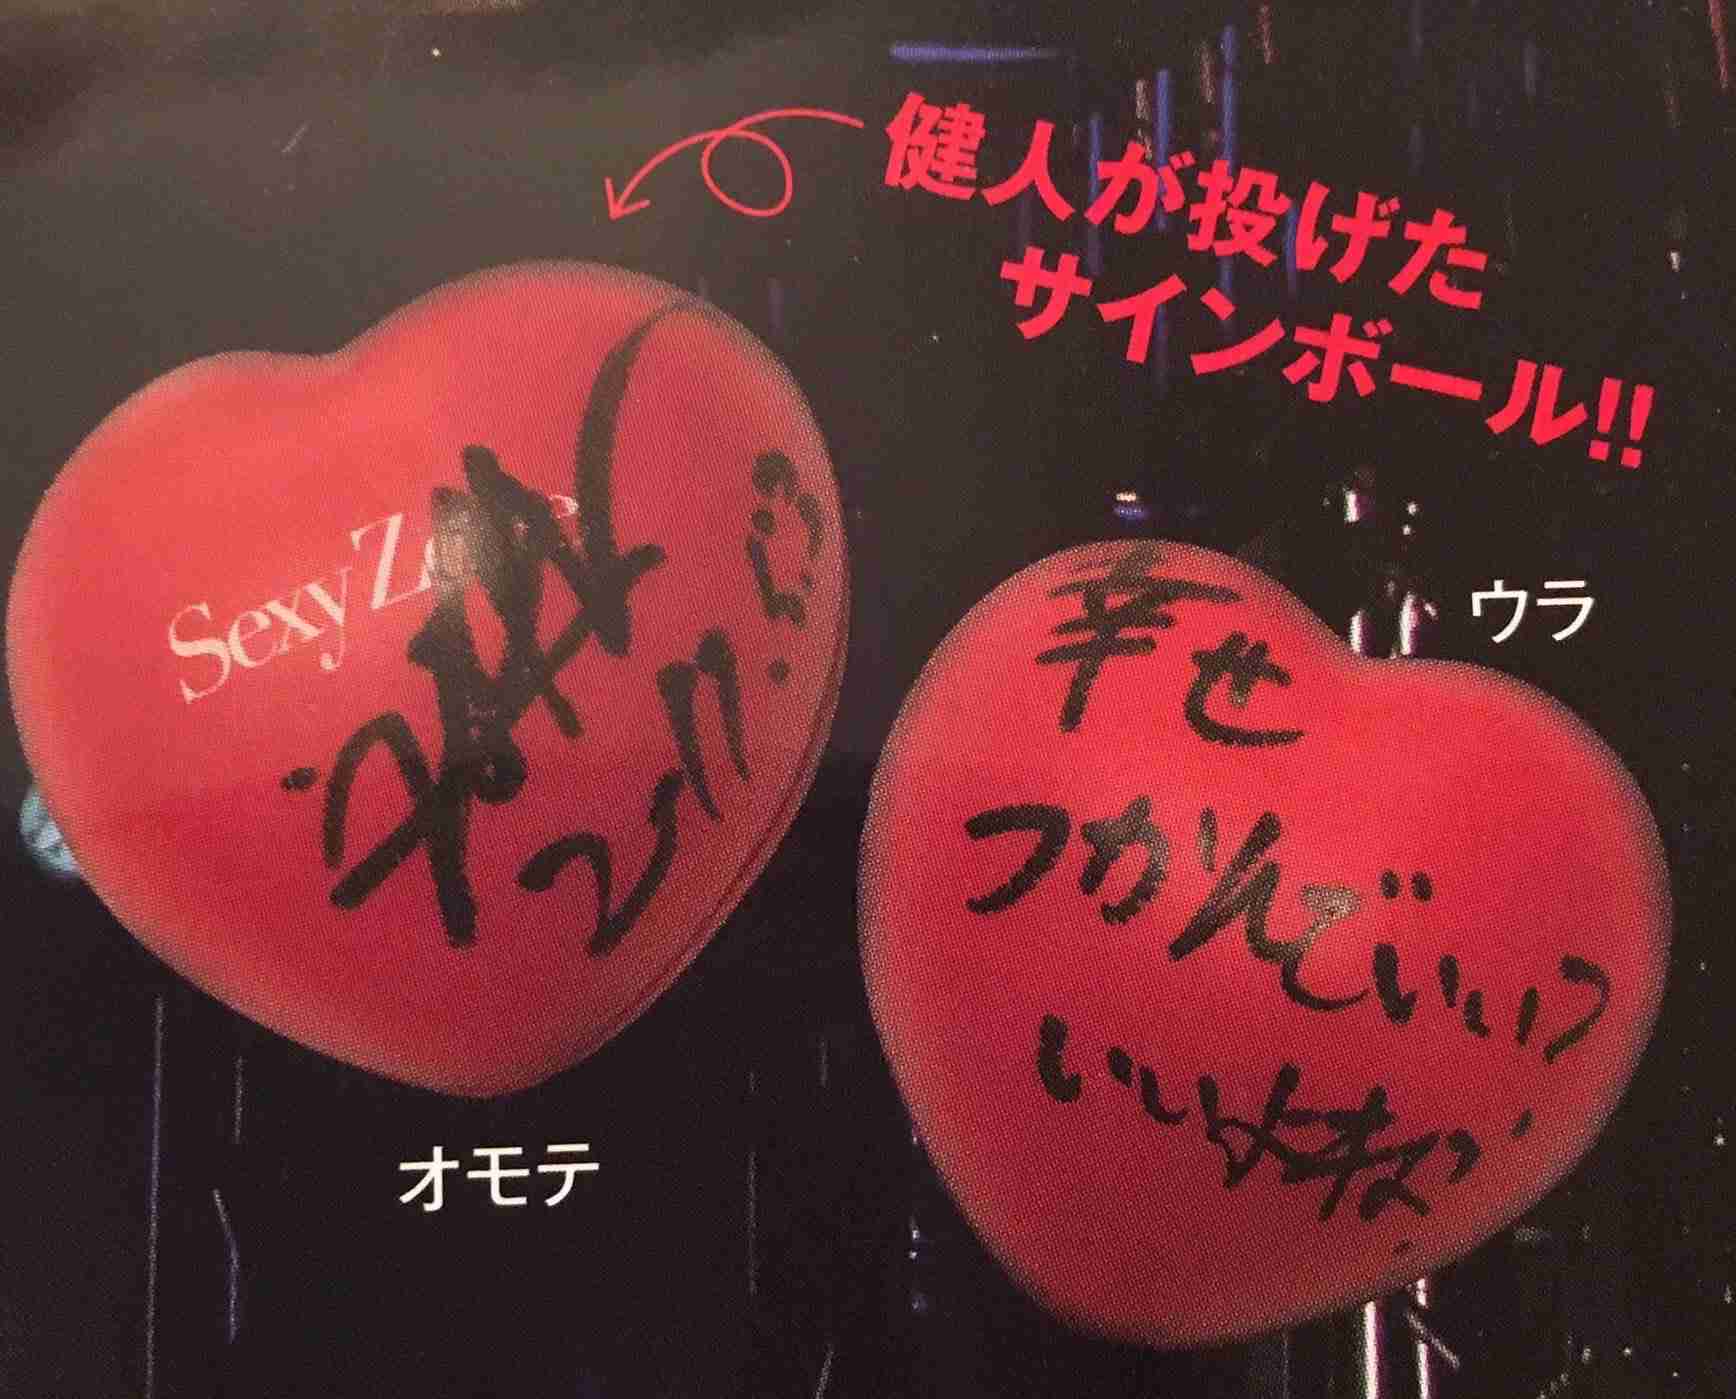 健人が投げた
サインボール!!
Sexy Zone
オモテ
ウラ
幸せ
つかんでいい?
いいよね?